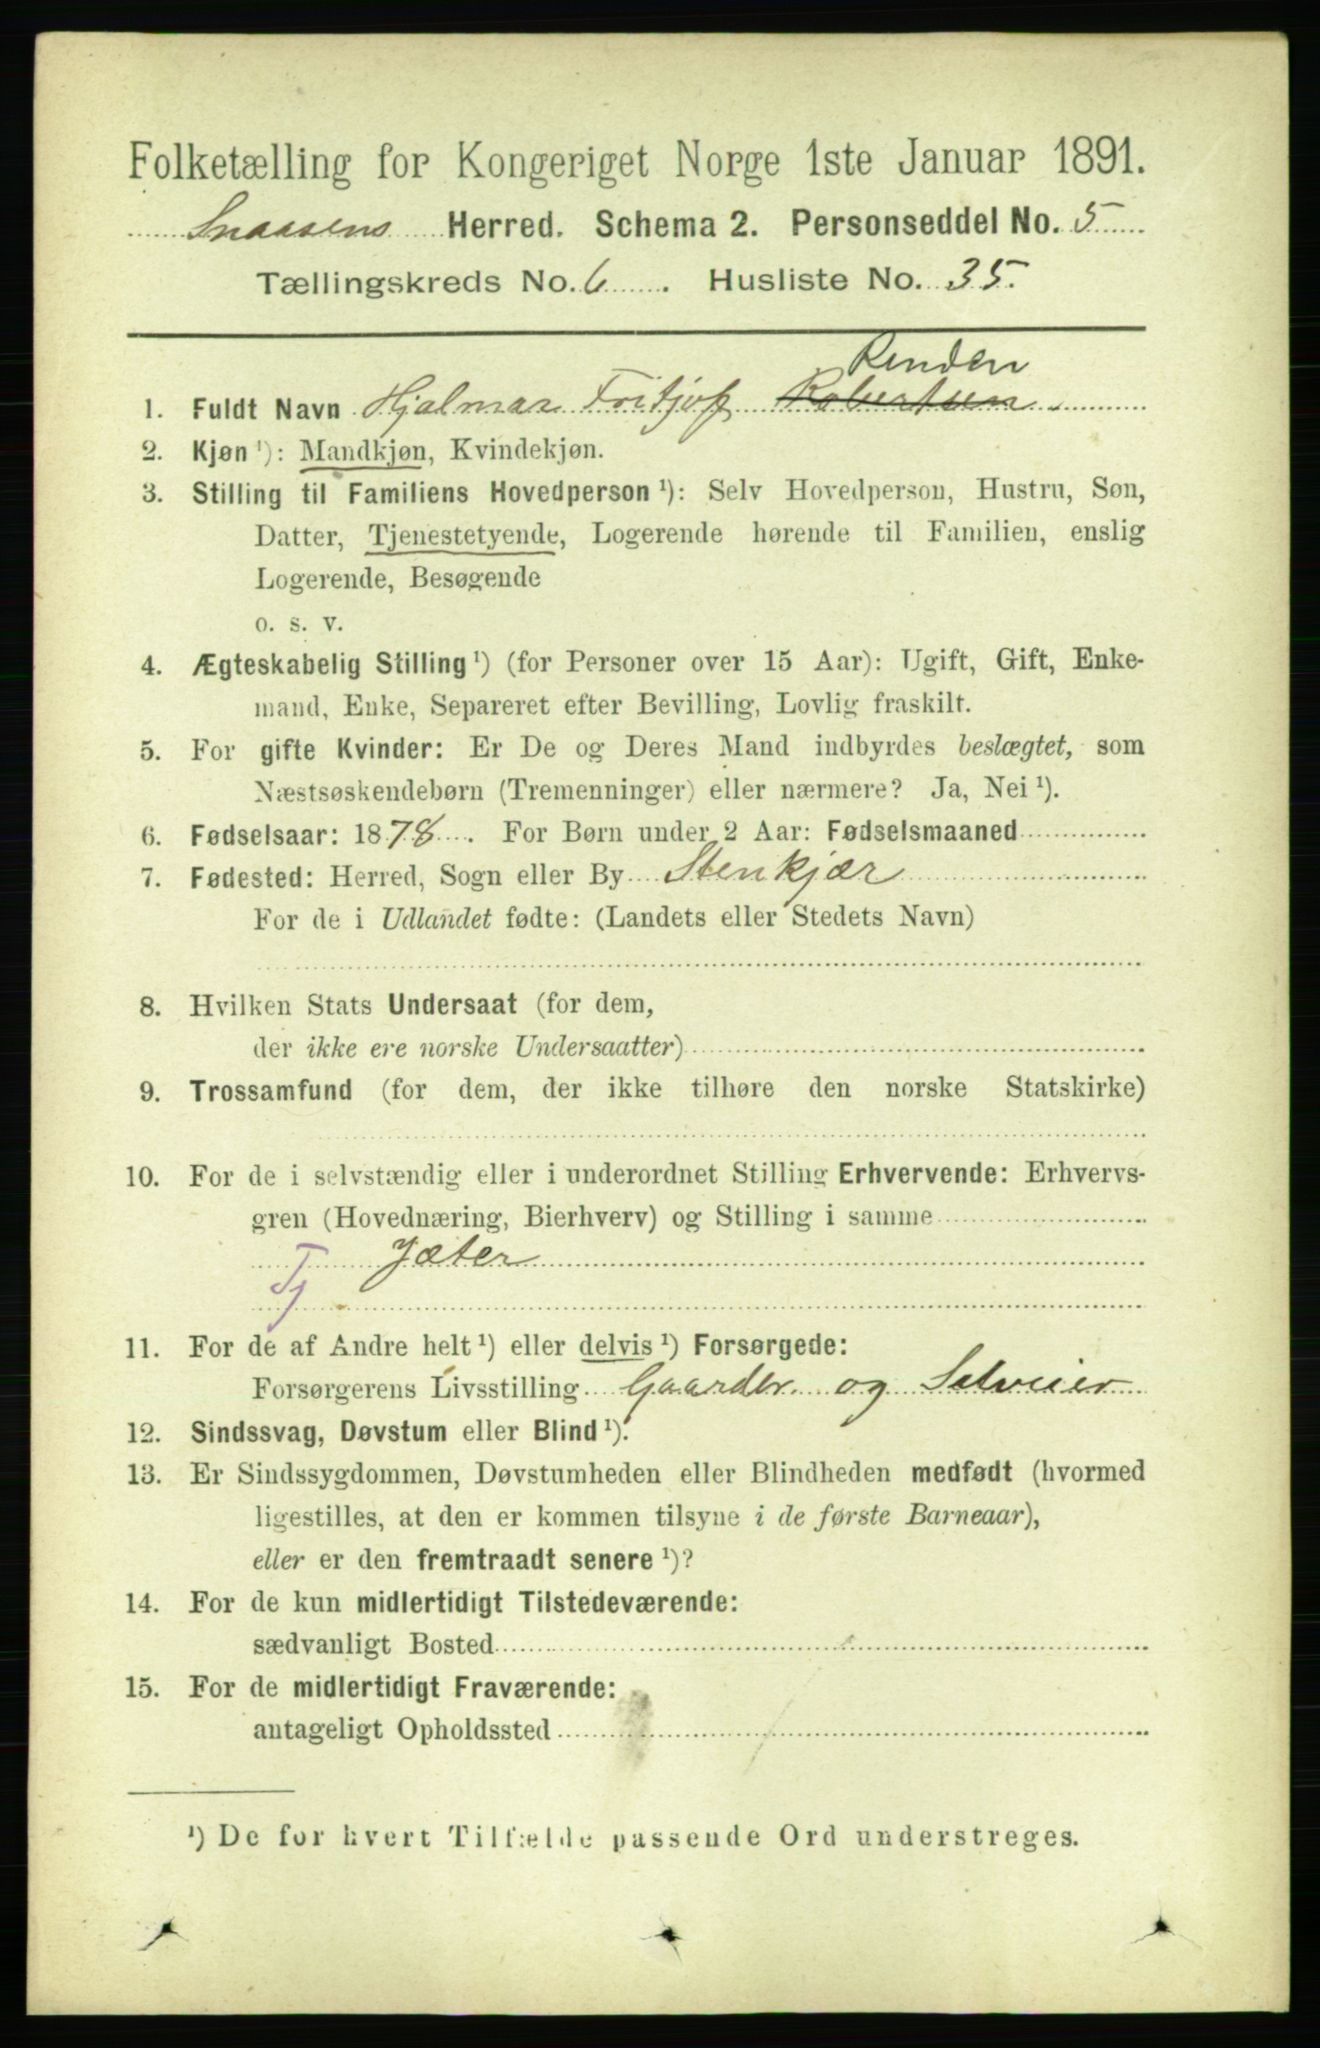 Folketælling for Kongeriget Norge 1ste Januar 1891.
Snaasens Herred. Schema 2. Personseddel No. 5
Tællingskreds No. 6. Husliste No. 35.
Renden
1. Fuldt Navn Hjalmar Fritjof Robertsen
2. Kjøn ¹): Mandkjøn, Kvindekjøn.
3. Stilling til Familiens Hovedperson ¹): Selv Hovedperson, Hustru, Søn,
Datter, Tjenestetyende, Logerende hørende til Familien, enslig
Logerende, Besøgende
o. s. v.
4. Ægteskabelig Stilling ¹) (for Personer over 15 Aar): Ugift, Gift, Enke-
mand, Enke, Separeret efter Bevilling, Lovlig fraskilt.
5. For gifte Kvinder: Er De og Deres Mand indbyrdes beslægtet, som
Næstsøskendebørn (Tremenninger) eller nærmere? Ja, Nei ¹).
6. Fødselsaar: 1878. For Børn under 2 Aar: Fødselsmaaned
7. Fødested: Herred, Sogn eller By Stenkjær
For de i Udlandet fødte: (Landets eller Stedets Navn)
8. Hvilken Stats Undersaat (for dem,
der ikke ere norske Undersaatter)
9. Trossamfund (for dem, der ikke tilhøre den norske Statskirke)
10. For de i selvstændig eller i underordnet Stilling Erhvervende: Erhvervs-
gren (Hovednæring, Bierhverv) og Stilling i samme
Jæter
Tj
11. For de af Andre helt ¹) eller delvis ¹) Forsørgede:
Forsørgerens Livsstilling Gaardbr. og Selveier
12. Sindssvag, Døvstum eller Blind ¹).
13. Er Sindssygdommen, Døvstumheden eller Blindheden medfødt (hvormed
ligestilles, at den er kommen tilsyne i de første Barneaar),
eller er den fremtraadt senere ¹)?
14. For de kun midlertidigt Tilstedeværende:
sædvanligt Bosted
15. For de midlertidigt Fraværende:
antageligt Opholdssted
¹) De for hvert Tilfælde passende Ord understreges.